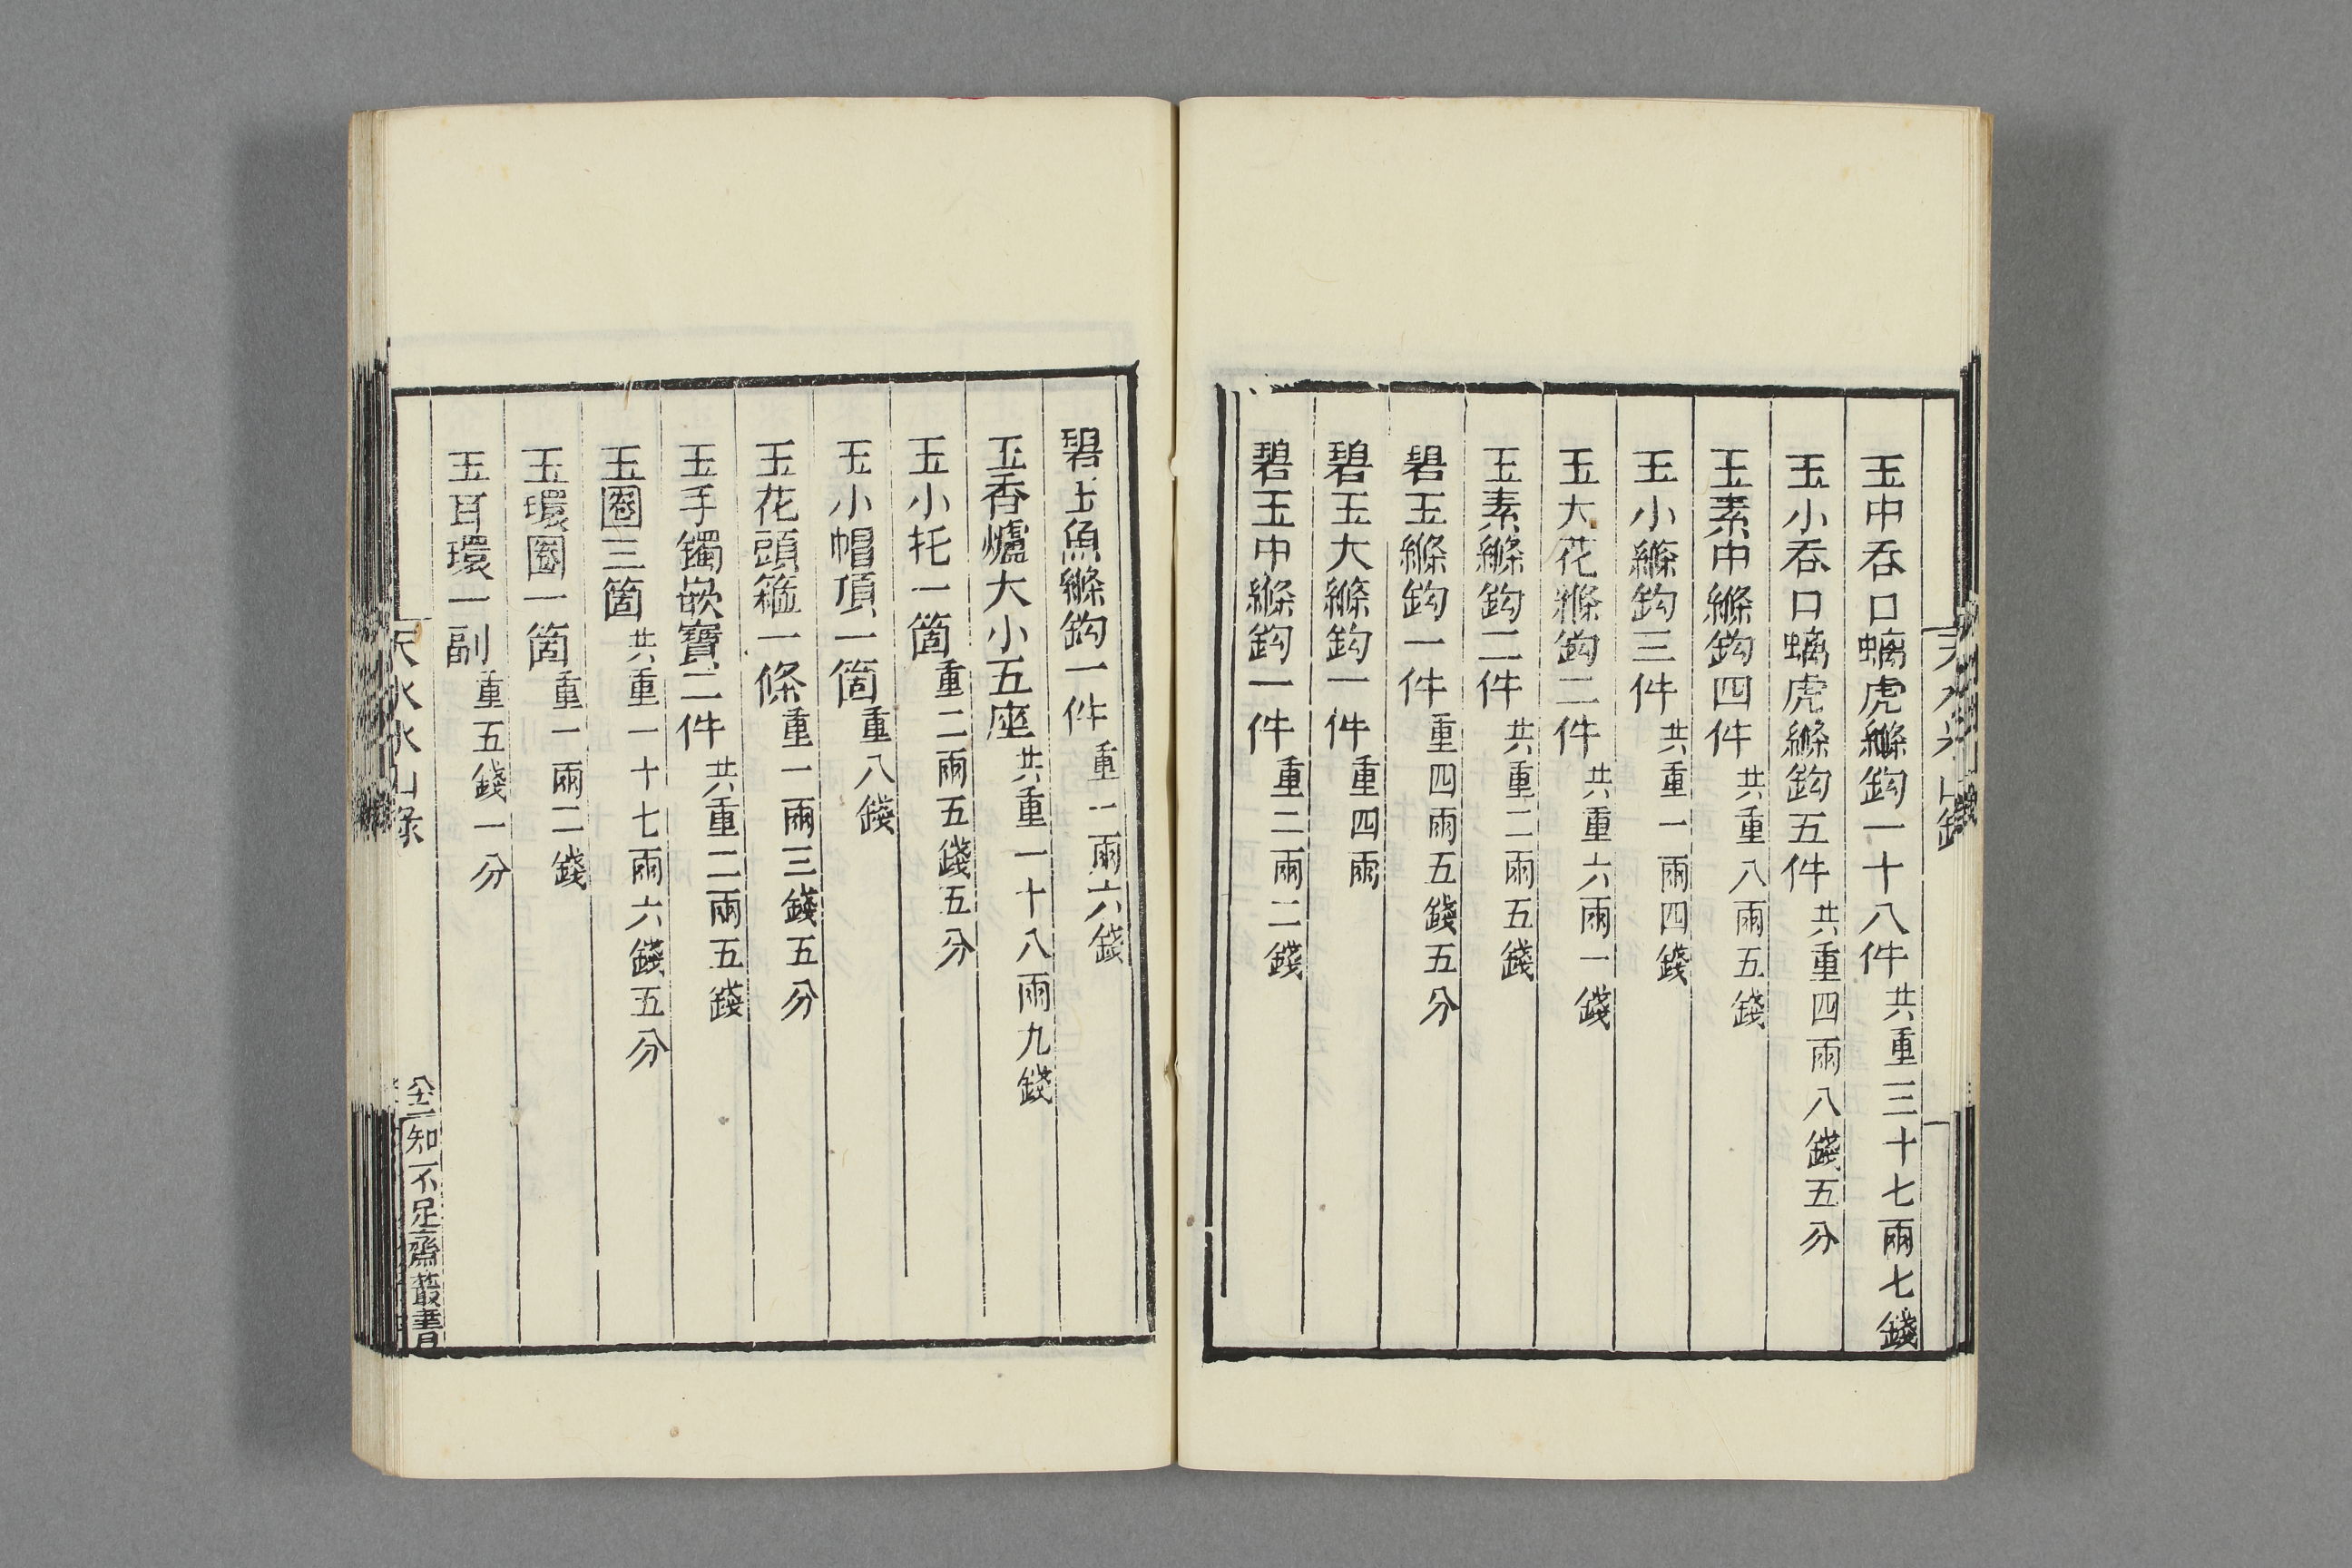 玉中呑口螭虎縧鈎一十八件共重三十七兩七錢
玉小呑口螭虎縧鈎五件共重四兩八錢五分
玉素中縧鈎四件共重八兩五錢
玉小縧鈎三件共重一兩四錢
玉大花縧鈎二件共重六兩一錢
玉素縧鈎二件共重二兩五錢
碧玉縧鈎一件重四兩五錢五分
碧玉大縧鈎一件重四兩
碧玉中縧鈎一件重二兩二錢
碧玉魚縧鈎一件重二兩六錢
玉香爐大小五座共重一十八兩九錢
玉小托一箇重二兩五錢五分
玉小帽頂一箇重八錢
玉花頭箍一條重一兩三錢五分
玉手鐲嵌寶二件共重二兩五錢
玉圈三箇共重一十七兩六錢五分
玉環圈一箇重一兩二錢
玉耳環一副重五錢一分
天水冰山錄
知不足齋叢書